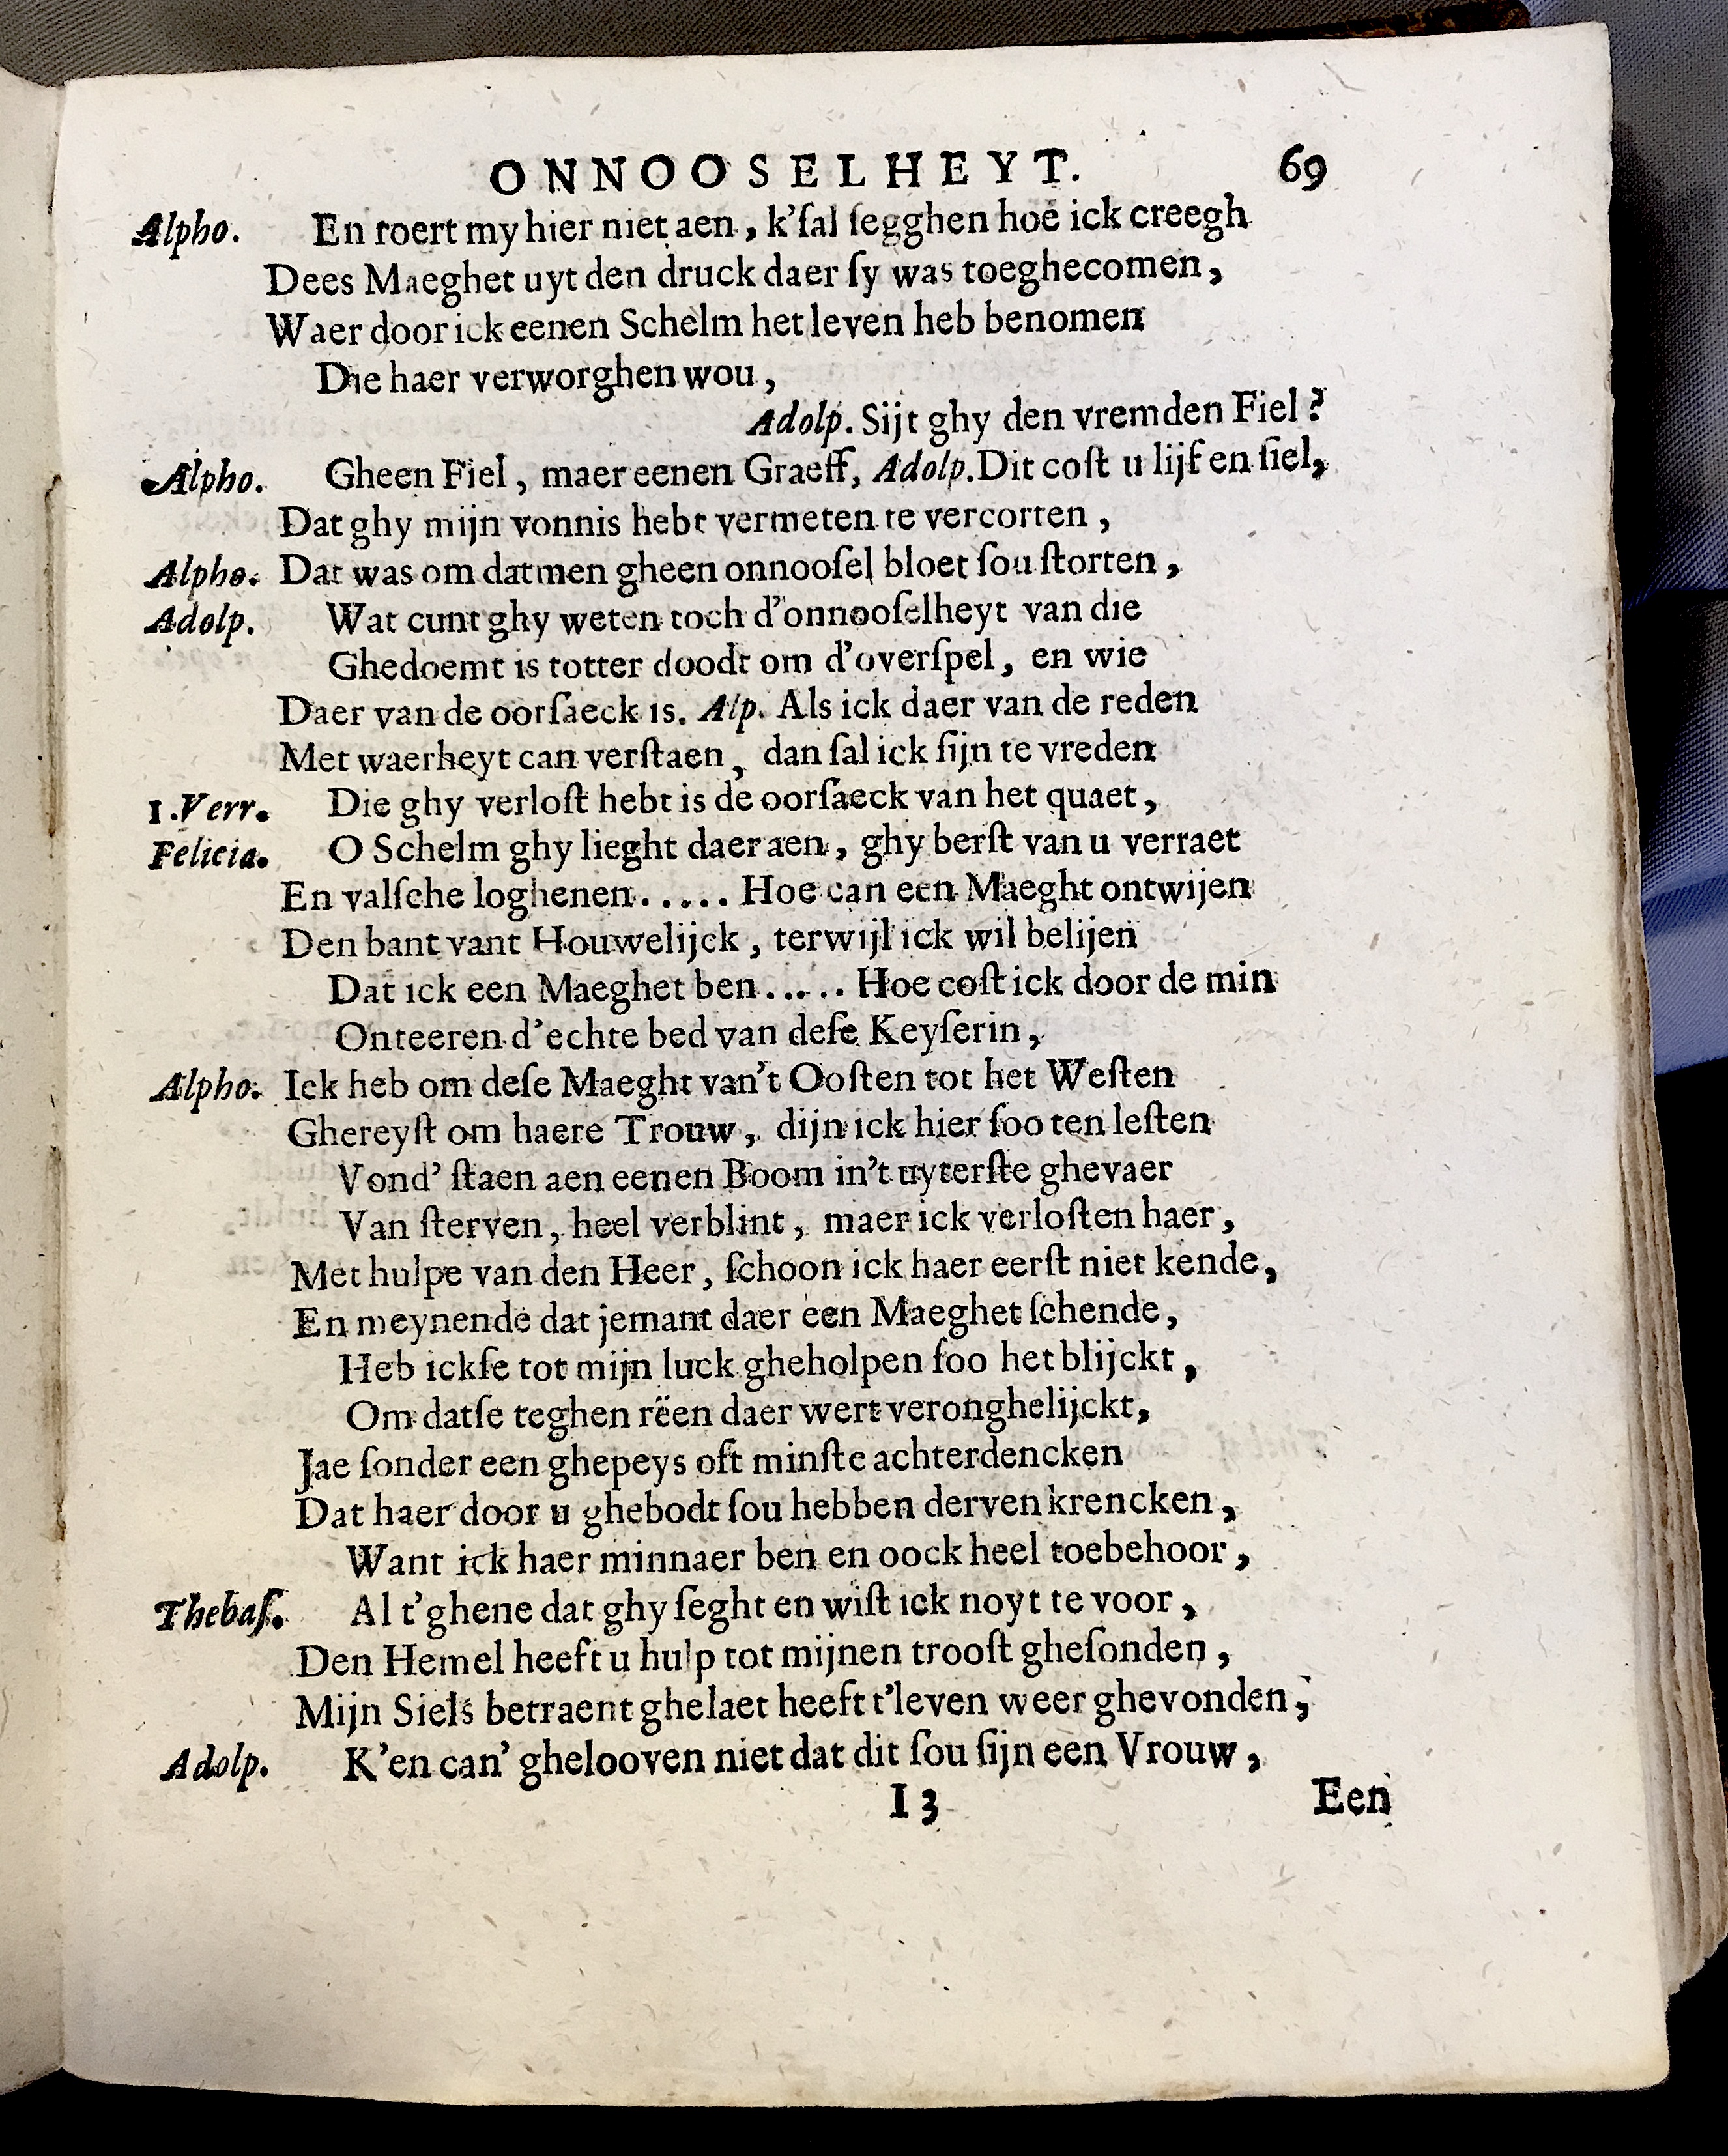 ONNOOSELHEYT. 69
Alpho. En roert my hier niet aen, k'ſal ſegghen hoe ick creegh
Dees Maeghet uyt den druck daer ſy was toeghecomen,
Waer door ick eenen Schelm het leven heb benomen
Die haer verworghen wou,
Adolp. Sijt ghy den vremden Fiel?
Alpho. Gheen Fiel, maer eenen Graeff, Adolp. Dit coſt u lijf en ſiel,
Dat ghy mijn vonnis hebt vermeten te vercorten,
Alpho. Dat was om datmen gheen onnooſel bloet ſou ſtorten,
Adolp. Wat cunt ghy weten toch d'onnooſelheyt van die
Ghedoemt is totter doodt om d'overſpel, en wie
Daer van de oorſaeck is. Alp. Als ick daer van de reden
Met waerheyt can verſtaen, dan ſal ick ſijn te vreden
1. Verr. Die ghy verloſt hebt is de oorſaeck van het quaet,
Felicia. O Schelm ghy lieght daer aen, ghy berſt van u verraet
En valſche loghenen..... Hoe can een Maeght ontwijen
Den bant vant Houwelijck, terwijl ick wil belijen
Dat ick een Maeghet ben..... Hoe coſt ick door de min
Onteeren d'echte bed van deſe Keyſerin,
Alpho. Ick heb om deſe Maeght van't Ooſten tot het Weſten
Ghereyſt om haere Trouw, dijn ick hier ſoo ten leſten
Vond' ſtaen aen eenen Boom in't uyterſte ghevaer
Van ſterven, heel verblint, maer ick verloſten haer,
Met hulpe van den Heer, ſchoon ick haer eerſt niet kende,
En meynende dat jemant daer een Maeghet ſchende,
Heb ickſe tot mijn luck gheholpen ſoo het blijckt,
Om datſe teghen rëen daer wert veronghelijckt,
Jae ſonder een ghepeys oft minſte achterdencken
Dat haer door u ghebodt ſou hebben derven krencken,
Want ick haer minnaer ben en oock heel toebehoor,
Thebaſ. Al t'ghene dat ghy ſeght en wiſt ick noyt te voor,
Den Hemel heeft u hulp tot mijnen trooſt gheſonden,
Mijn Siels betraent ghelaet heeft t'leven weer ghevonden,
Adolp. K'en can' ghelooven niet dat dit ſou ſijn een Vrouw,
I 3 Een